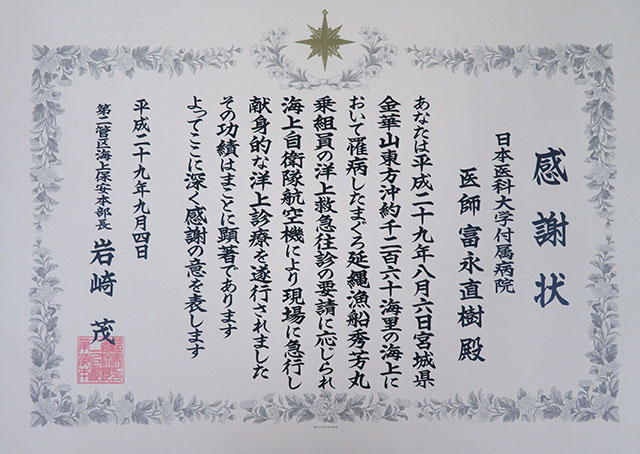 感謝状
日本医科大学付属病院
医師 富永直樹 殿
あなたは平成二十九年八月六日宮城県
金華山東方沖約千二百六十海里の海上に
おいて罹病したまぐろ延縄漁船秀芳丸
乗組員の洋上救急往診の要請に応じられ
海上自衛隊航空機により現場に急行し
献身的な洋上診療を遂行されました
その功績はまことに顕著であります
よってここに深く感謝の意を表します
平成二十九年九月四日
第二管区海上保安本部長 岩崎 茂